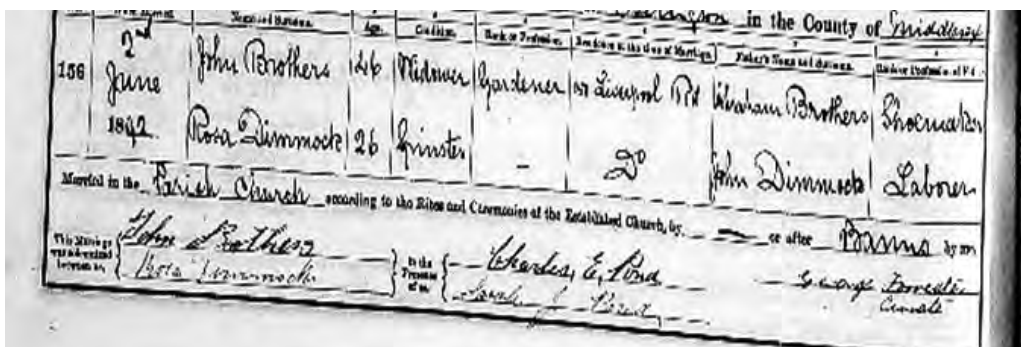 in the County of Middlesex
Name and Surname. Age. Condition. Rank or Profession. Residence at the time of Marriage. Father's Name and Surname. Rank or Profession of
156 2nd June 1892 John Brothers 26 Widower Gardener Liverpool Rd Abraham Brothers Shoemaker
Rosa Dimmock 26 Spinster - Do John Dimmock Laborer
Married in the Parish Church according to the Rites and Ceremonies of the Established Church, by — or after Banns by me
This Marriage was solemnized between us, John Brothers Rosa Dimmock in the Presence of us, Charles E. Pond Sarah J Pond George Forrester Curate